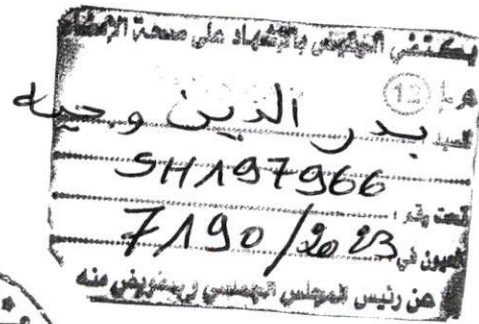 بمقتضى التفويض بالإشهاد على صحة الإمضاء
12
السيد بدر الدين وجيه
SH197966
تحت رقم : 7190/2023
العيون في
عن رئيس المجلس الجماعي وبتفويض منه